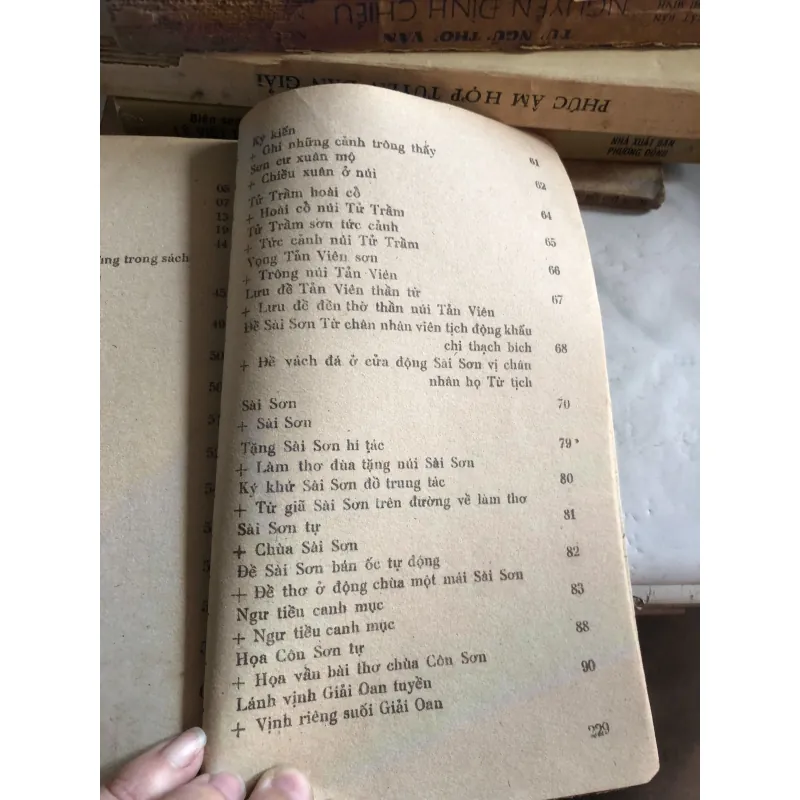 NGUYỄN ĐÌNH CHIỂU
TỪ NGỮ THƠ VĂN
PHÚC ÂM HỢP TUYỂN DẪN GIẢI
NHÀ XUẤT BẢN
PHƯƠNG ĐÔNG
05
07
13
19
44
trong sách
45
Ký kiến
+ Ghi những cảnh trông thấy 61
Sơn cư xuân mộ
+ Chiều xuân ở núi 62
Tử Trầm hoài cổ
+ Hoài cổ núi Tử Trầm 64
Tử Trầm sơn tức cảnh
+ Tức cảnh núi Tử Trầm 65
Vọng Tản Viên sơn
+ Trông núi Tản Viên 66
Lưu đề Tản Viên thần từ
+ Lưu đề đền thờ thần núi Tản Viên 67
Đề Sài Sơn Từ chân nhân viên tịch động khẩu
chi thạch bích 68
+ Đề vách đá ở cửa động Sài Sơn vị chân
nhân họ Từ tịch
Sài Sơn 70
+ Sài Sơn
Tặng Sài Sơn hí tác 79
+ Làm thơ đùa tặng núi Sài Sơn
Ký khứ Sài Sơn đồ trung tác 80
+ Từ giã Sài Sơn trên đường về làm thơ
Sài Sơn tự 81
+ Chùa Sài Sơn
Đề Sài Sơn bán ốc tự động 82
+ Đề thơ ở động chùa một mái Sài Sơn
Ngư tiều canh mục 83
+ Ngư tiều canh mục
Họa Côn Sơn tự 88
+ Họa vần bài thơ chùa Côn Sơn
Lánh vịnh Giải Oan tuyền 90
+ Vịnh riêng suối Giải Oan
229